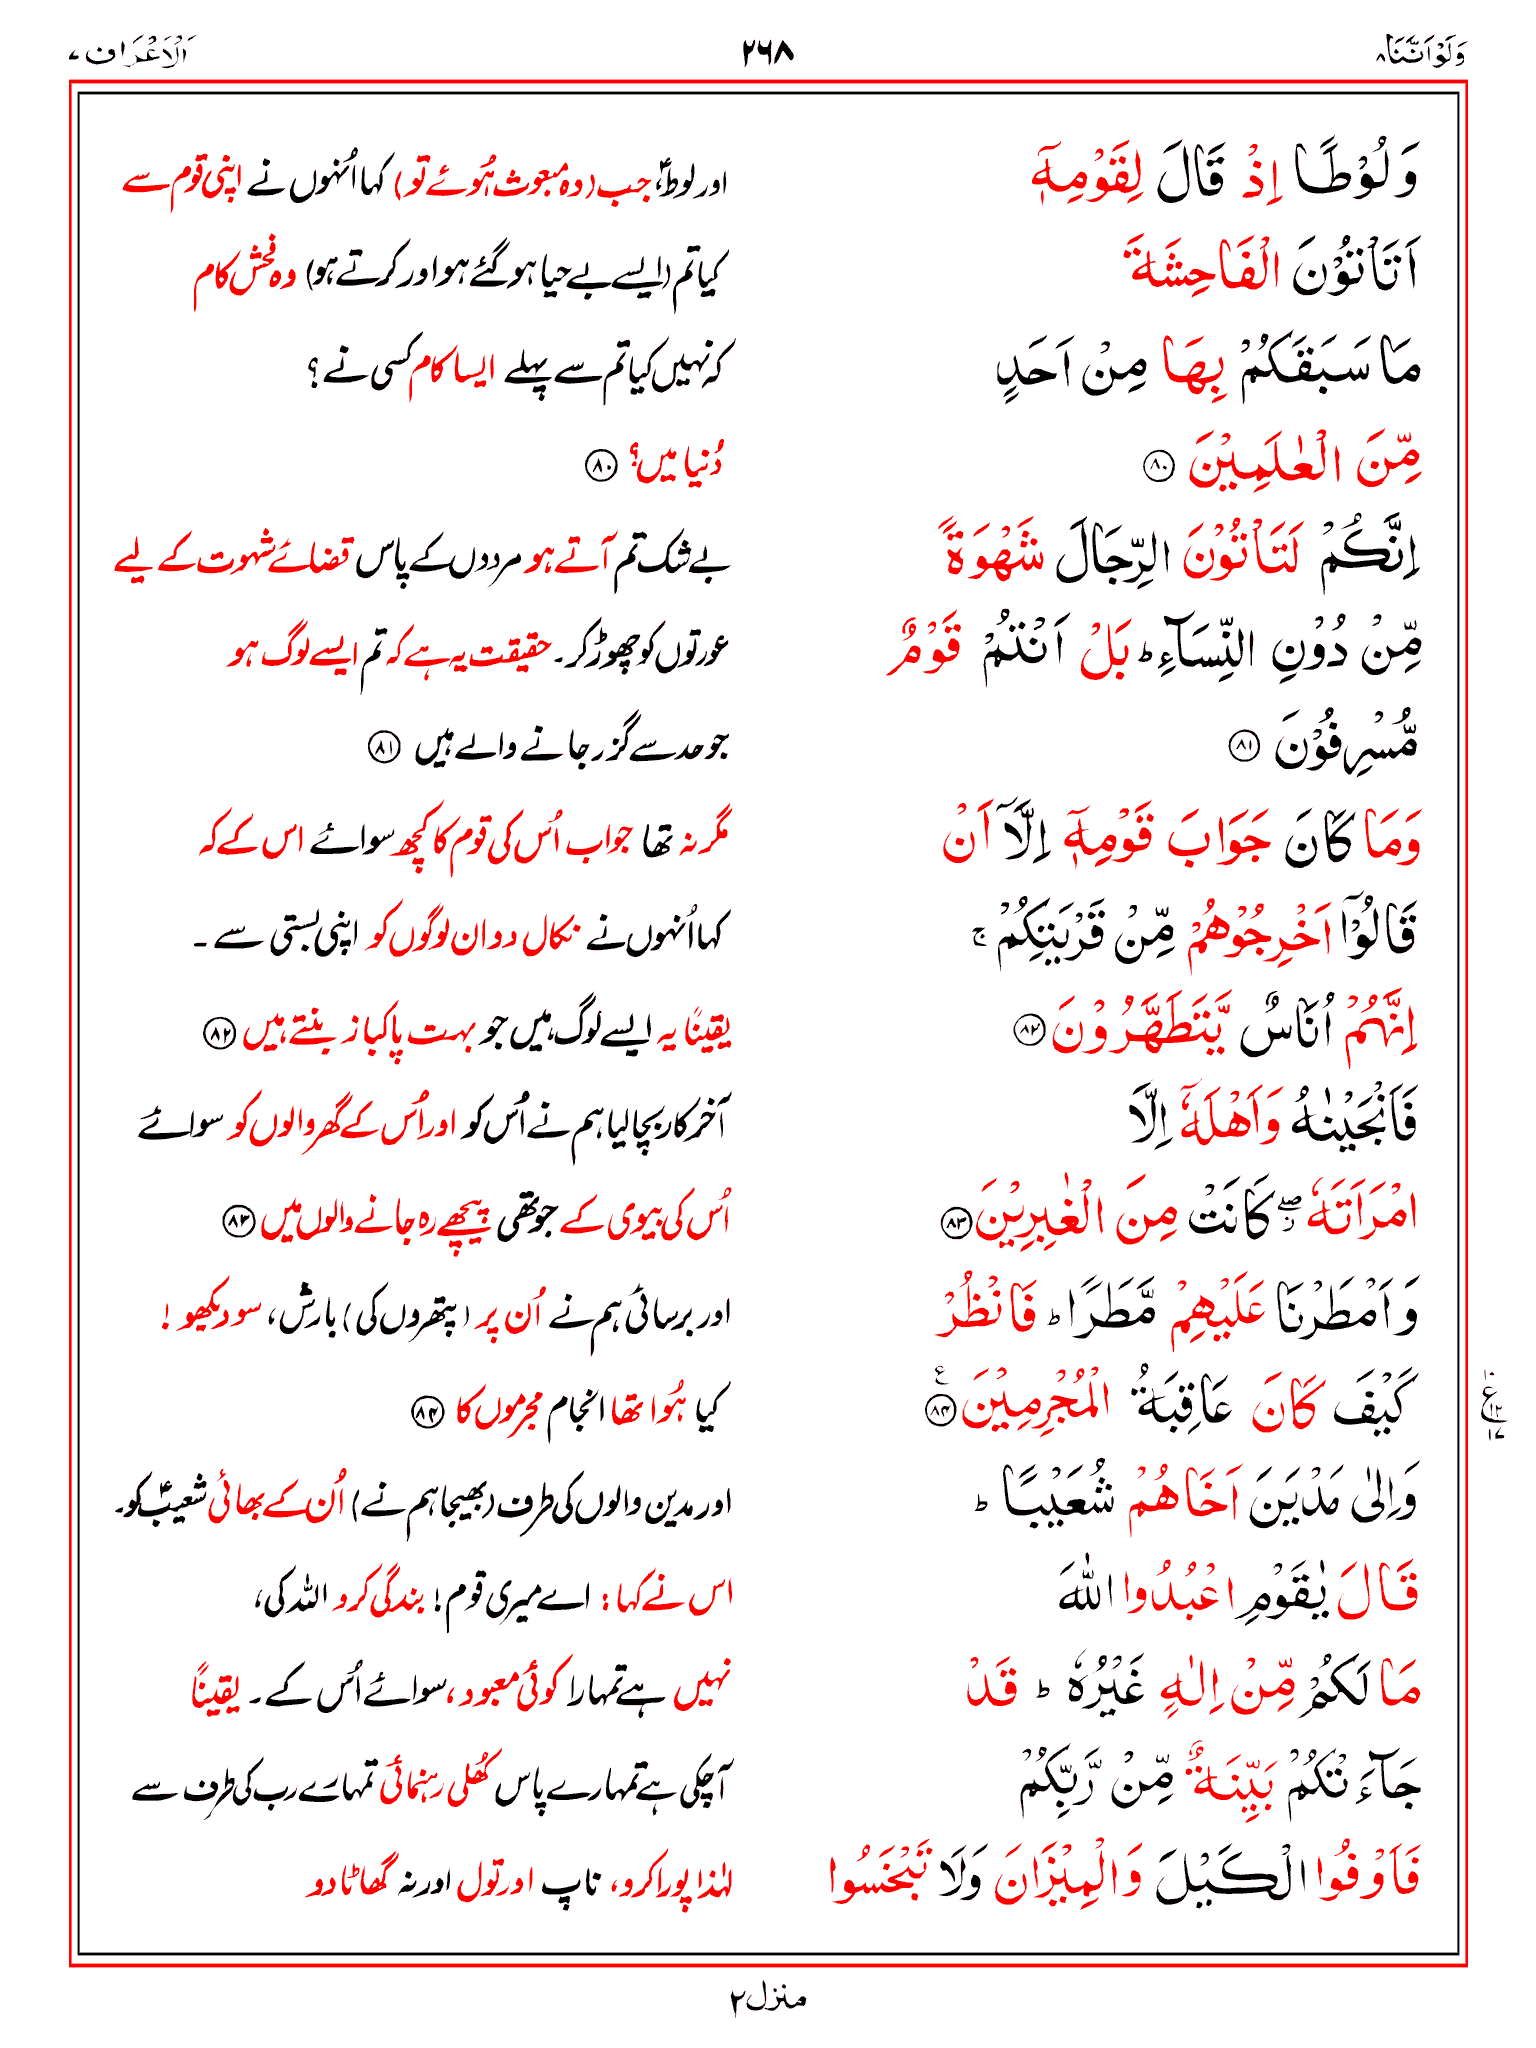 وَلَوْاَنَّنَا ۸ ۲۶۸ اَلْاَعْرَاف ۷
وَلُوْطًا اِذْ قَالَ لِقَوْمِهٖۤ اور لوطؑ، جب (وہ مبعوث ہُوئے تو) کہا اُنہوں نے اپنی قوم سے
اَتَاْتُوْنَ الْفَاحِشَةَ کیا تم (ایسے بے حیا ہو گئے ہو اور کرتے ہو) وہ فحش کام
مَا سَبَقَكُمْ بِهَا مِنْ اَحَدٍ کہ نہیں کیا تم سے پہلے ایسا کام کسی نے ؟
مِّنَ الْعٰلَمِيْنَ ۸۰ دُنیا میں؟ ۸۰
اِنَّكُمْ لَتَاْتُوْنَ الرِّجَالَ شَهْوَةً بے شک تم آتے ہو مردوں کے پاس قضائے شہوت کے لیے
مِّنْ دُوْنِ النِّسَآءِ ؕ بَلْ اَنْتُمْ قَوْمٌ عورتوں کو چھوڑ کر۔ حقیقت یہ ہے کہ تم ایسے لوگ ہو
مُّسْرِفُوْنَ ۸۱ جو حد سے گزر جانے والے ہیں ۸۱
وَمَا كَانَ جَوَابَ قَوْمِهٖۤ اِلَّاۤ اَنْ مگر نہ تھا جواب اُس کی قوم کا کچھ سوائے اس کے کہ
قَالُوْۤا اَخْرِجُوْهُمْ مِّنْ قَرْيَتِكُمْ ۚ کہا اُنہوں نے نکال دو ان لوگوں کو اپنی بستی سے ۔
اِنَّهُمْ اُنَاسٌ يَّتَطَهَّرُوْنَ ۸۲ یقینًا یہ ایسے لوگ ہیں جو بہت پاکباز بنتے ہیں ۸۲
فَاَنْجَيْنٰهُ وَاَهْلَهٗۤ اِلَّا آخر کار بچا لیا ہم نے اُس کو اور اُس کے گھر والوں کو سوائے
امْرَاَتَهٗ ۖ كَانَتْ مِنَ الْغٰبِرِيْنَ ۸۳ اُس کی بیوی کے جو تھی پیچھے رہ جانے والوں میں ۸۳
وَاَمْطَرْنَا عَلَيْهِمْ مَّطَرًا ؕ فَانْظُرْ اور برسائی ہم نے اُن پر (پتھروں کی) بارش، سو دیکھو !
كَيْفَ كَانَ عَاقِبَةُ الْمُجْرِمِيْنَ ۸۴ ع کیا ہُوا تھا انجام مجرموں کا ۸۴
۱۰ ع ۱۲ ۱۷
وَاِلٰى مَدْيَنَ اَخَاهُمْ شُعَيْبًا ؕ اور مدین والوں کی طرف (بھیجا ہم نے) اُن کے بھائی شعیبؑ کو۔
قَالَ يٰقَوْمِ اعْبُدُوا اللّٰهَ اس نے کہا : اے میری قوم! بندگی کرو اللہ کی،
مَا لَكُمْ مِّنْ اِلٰهٍ غَيْرُهٗ ؕ قَدْ نہیں ہے تمہارا کوئی معبود، سوائے اُس کے ۔ یقینًا
جَآءَتْكُمْ بَيِّنَةٌ مِّنْ رَّبِّكُمْ آ چکی ہے تمہارے پاس کُھلی رہنمائی تمہارے رب کی طرف سے
فَاَوْفُوا الْكَيْلَ وَالْمِيْزَانَ وَلَا تَبْخَسُوا لہٰذا پورا کرو، ناپ اور تول اور نہ گھاٹا دو
منزل ۲